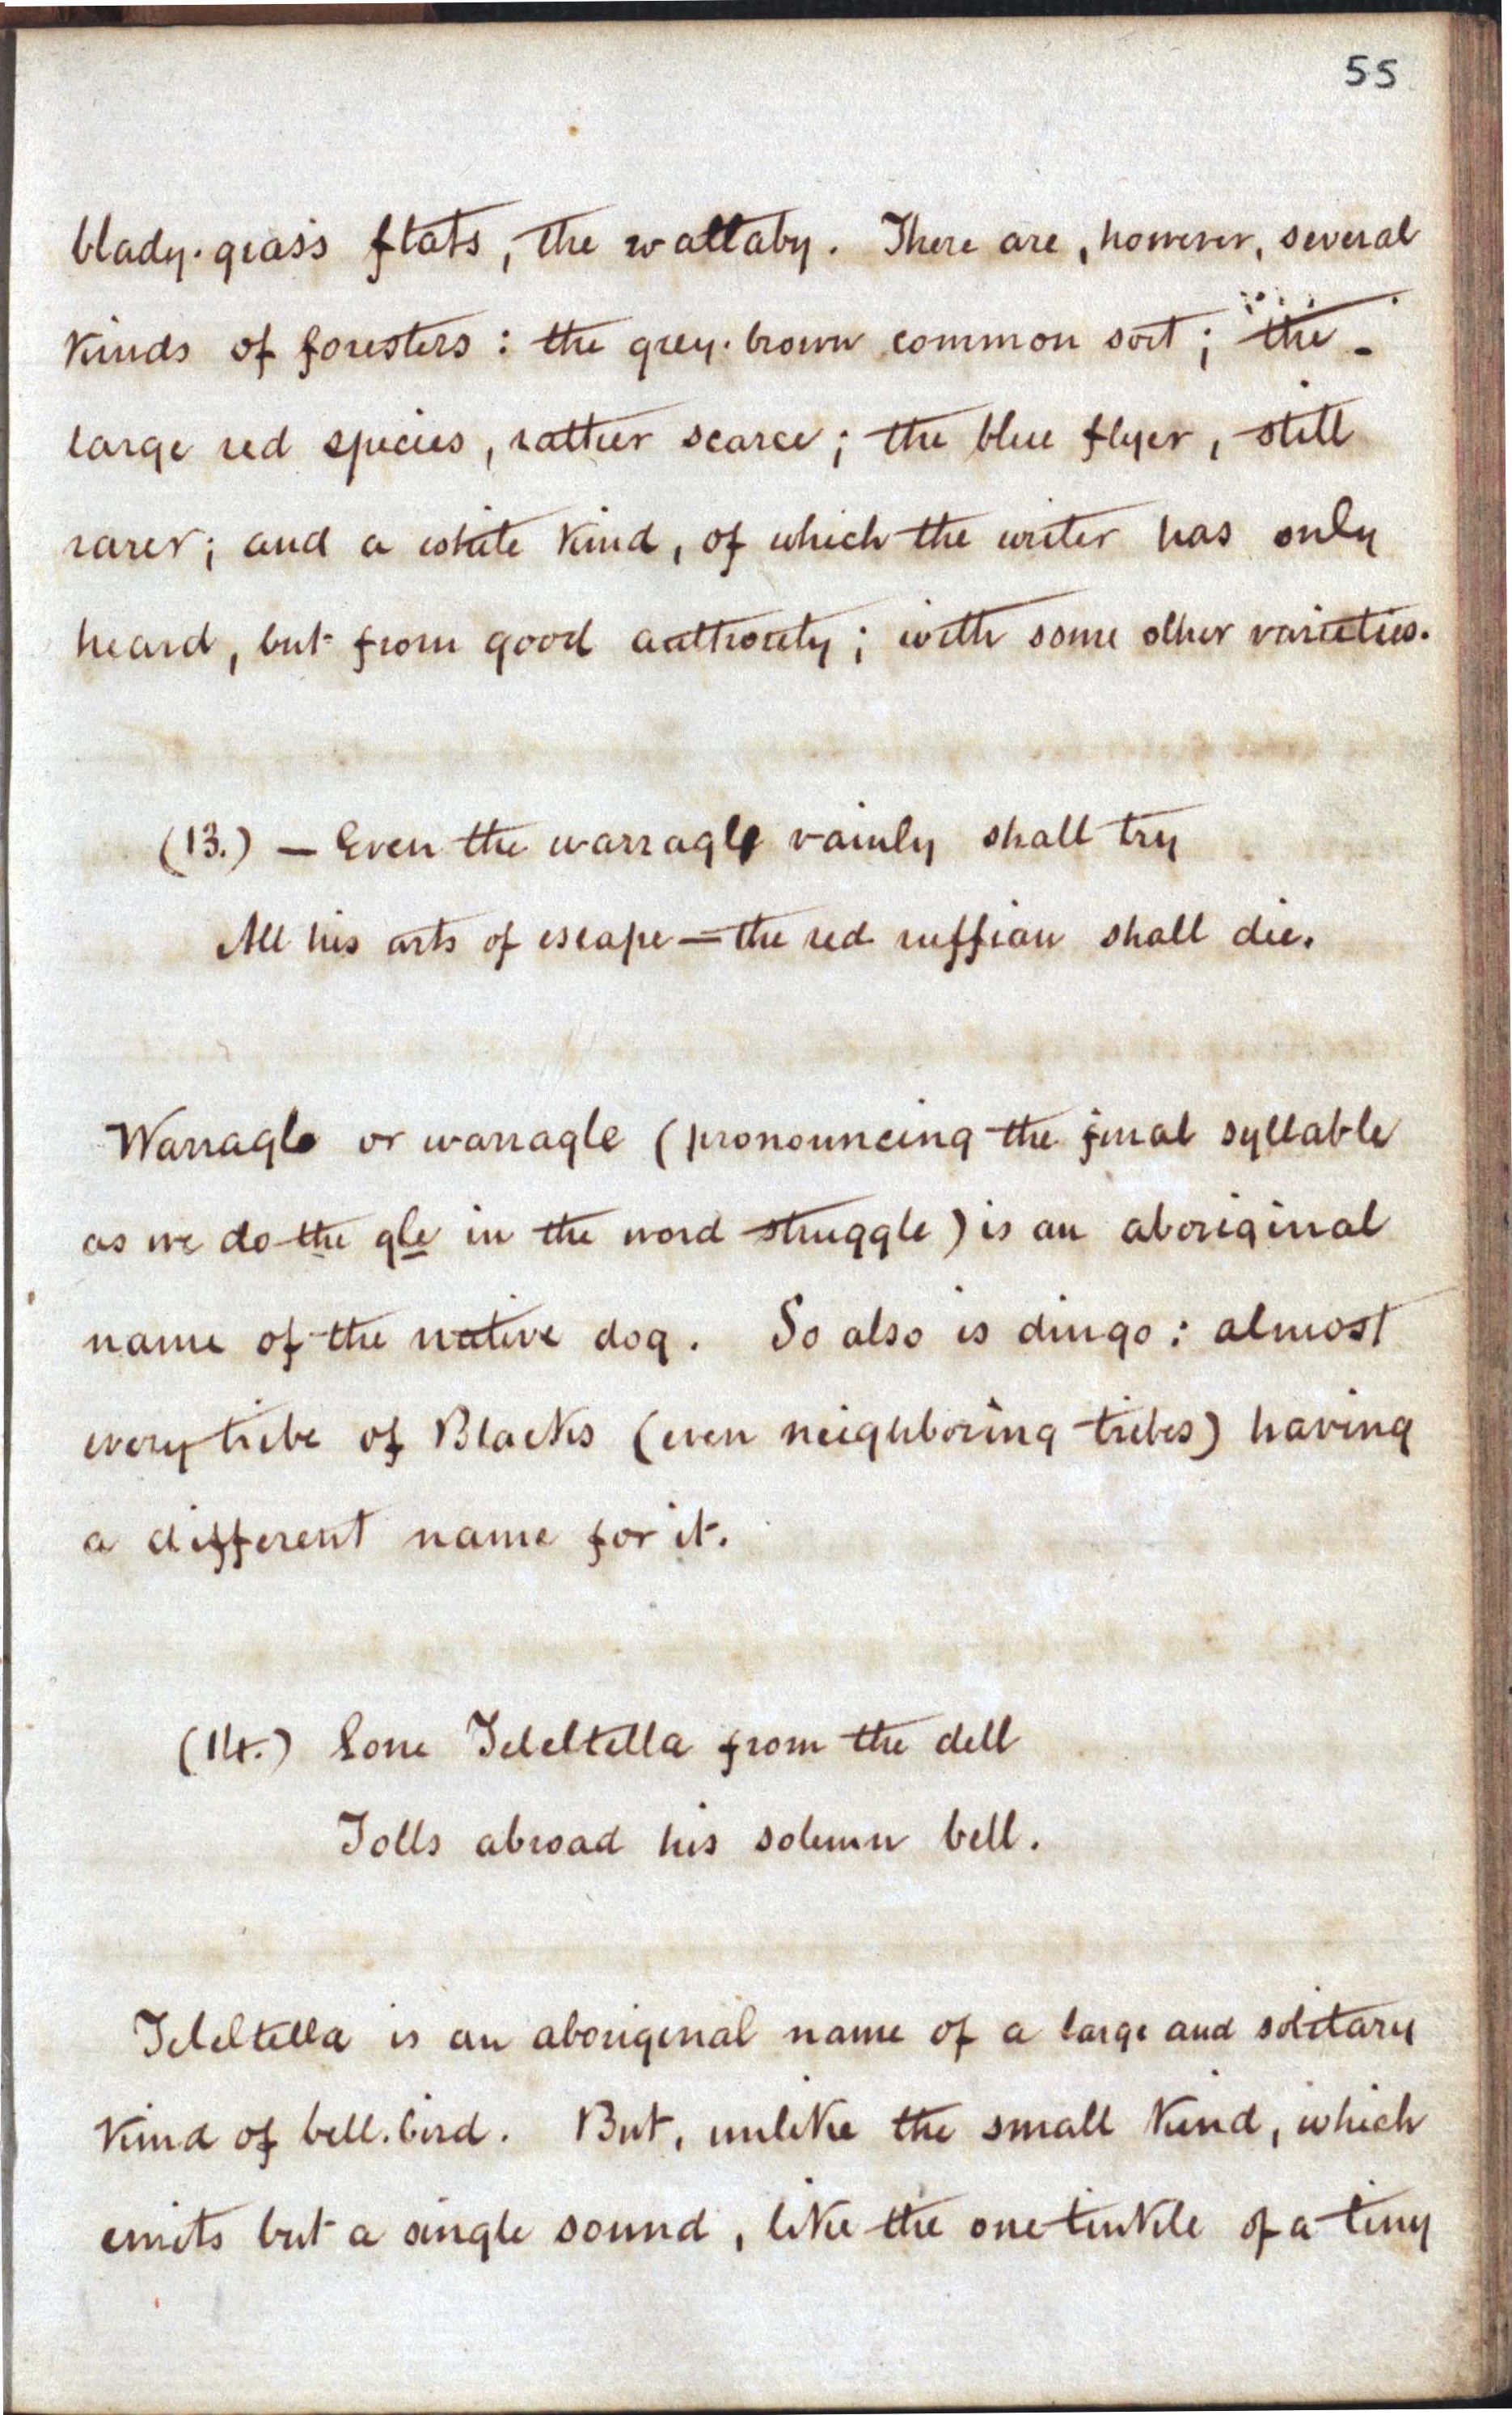 55
blady-grass flats, the wallaby. There are, however, several
kinds of foresters: the grey-brown common sort; the
large red species, rather scarce; the blue flyer, still
rarer; and a white kind, of which the writer has only
heard, but from good authority; with some other varieties.
(13.) — Even the warragle vainly shall try
All his arts of escape — the red ruffian shall die.
Warragle or warragle (pronouncing the final syllable
as we do the gle in the word struggle) is an aboriginal
name of the native dog. So also is dingo: almost
every tribe of Blacks (even neighboring tribes) having
a different name for it.
(14.) Lone Teleltella from the dell
Tolls abroad his solemn bell.
Teleltella is an aboriginal name of a large and solitary
kind of bell-bird. But, unlike the small kind, which
emits but a single sound, like the one tinkle of a tiny